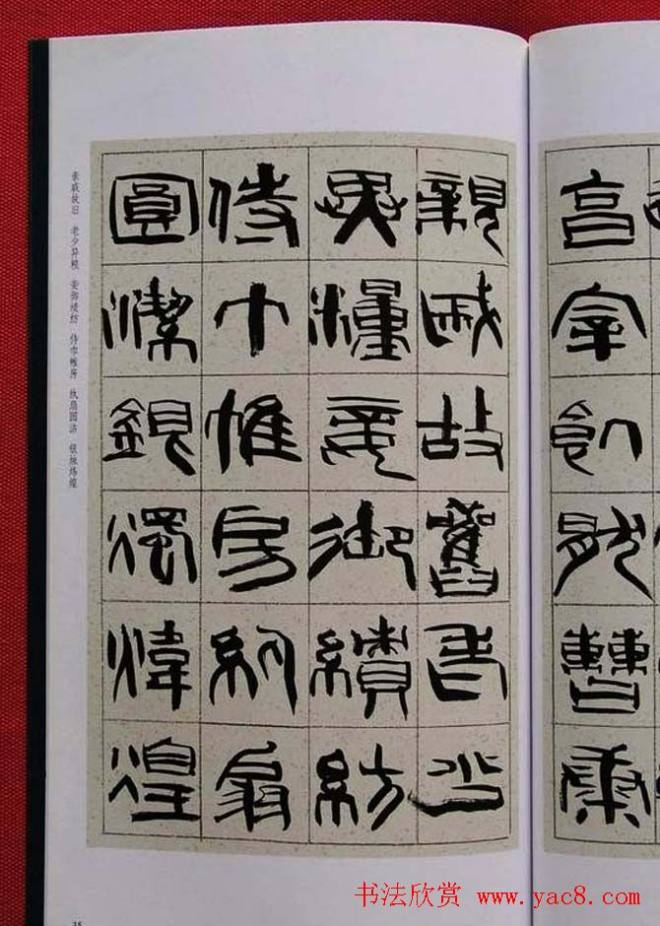 烹宰飢厭糟糠
親戚故舊老少
異糧妾御績紡
侍巾帷房紈扇
圓潔銀燭煒煌
亲戚故旧 老少异粮 妾御绩纺 侍巾帷房 纨扇圆洁 银烛炜煌
书法欣赏 www.yac8.com